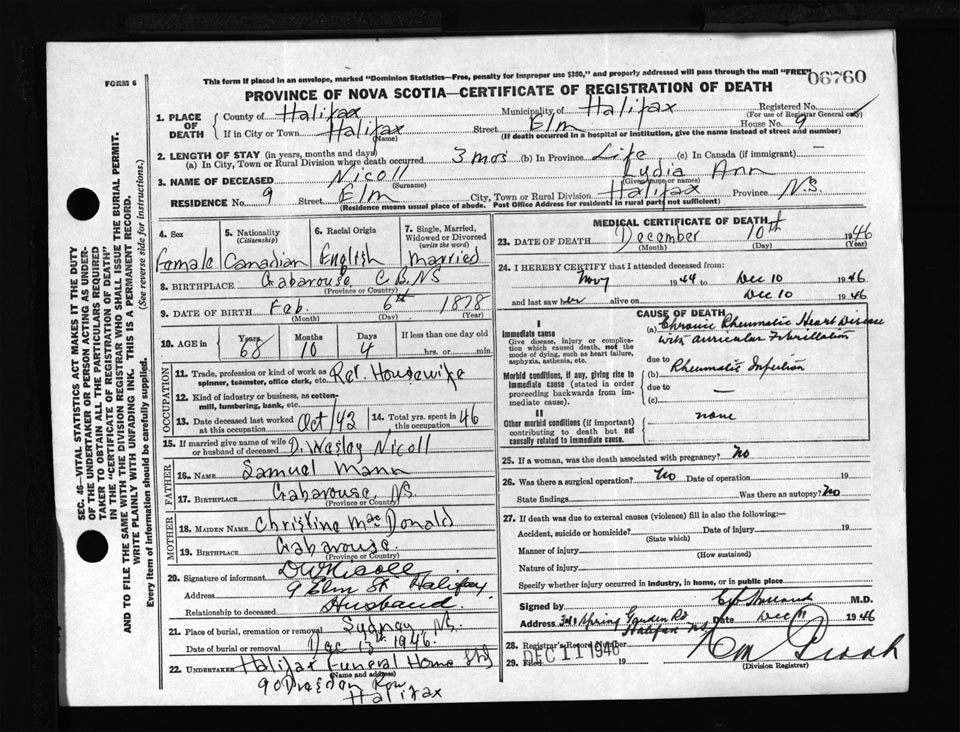 FORM 6
This form if placed in an envelope, marked "Dominion Statistics—Free, penalty for improper use $300," and properly addressed will pass through the mail "FREE"
06760
PROVINCE OF NOVA SCOTIA—CERTIFICATE OF REGISTRATION OF DEATH
1. PLACE OF DEATH
County of Halifax Municipality of Halifax Registered No.
(For use of Registrar General only)
If in City or Town Halifax Street Elm House No. 9
(Name) (If death occurred in a hospital or institution, give the name instead of street and number)
2. LENGTH OF STAY (in years, months and days)
(a) In City, Town or Rural Division where death occurred 3 mos (b) In Province Life (c) In Canada (if immigrant) —
3. NAME OF DECEASED Nicoll Lydia Ann
(Surname) (Given name or names)
RESIDENCE No. 9 Street Elm City, Town or Rural Division Halifax Province N.S.
(Residence means usual place of abode. Post Office Address for residents in rural parts not sufficient)
4. Sex
Female
5. Nationality (Citizenship)
Canadian
6. Racial Origin
English
7. Single, Married, Widowed or Divorced (write the word)
Married
8. BIRTHPLACE Gabarouse C.B, NS
(Province or Country)
9. DATE OF BIRTH Feb. 6th 1878
(Month) (Day) (Year)
10. AGE in Years Months Days If less than one day old
68 10 4 hrs. or min.
OCCUPATION
11. Trade, profession or kind of work as spinner, teamster, office clerk, etc. Ret. Housewife
12. Kind of industry or business, as cotton-mill, lumbering, bank, etc.
13. Date deceased last worked at this occupation Oct/43
14. Total yrs. spent in this occupation 46
15. If married give name of wife or husband of deceased D. Wesley Nicoll
FATHER
16. NAME Samuel Mann
17. BIRTHPLACE Gabarouse, NS.
(Province or Country)
MOTHER
18. MAIDEN NAME Christine MacDonald
19. BIRTHPLACE Gabarouse.
(Province or Country)
20. Signature of informant D W Nicoll
Address 9 Elm St Halifax
Relationship to deceased Husband.
21. Place of burial, cremation or removal Sydney NS.
Date of burial or removal Dec 13th 1946
22. UNDERTAKER Halifax Funeral Home Ltd
(Name and address)
90 Dresden Row
Halifax
MEDICAL CERTIFICATE OF DEATH
23. DATE OF DEATH December 10th 1946
(Month) (Day) (Year)
24. I HEREBY CERTIFY that I attended deceased from:
Nov 1944 to Dec 10 1946
and last saw her alive on Dec 10 1946
CAUSE OF DEATH
I
Immediate cause
Give disease, injury or complication which caused death, not the mode of dying, such as heart failure, asphyxia, asthenia, etc.
(a) Chronic Rheumatic Heart Disease
with auricular Fibrillation
due to
Morbid conditions, if any, giving rise to immediate cause (stated in order proceeding backwards from immediate cause).
(b) Rheumatic Infection
due to —
(c)
II
Other morbid conditions (if important) contributing to death but not causally related to immediate cause.
none
25. If a woman, was the death associated with pregnancy? No
26. Was there a surgical operation? No Date of operation 19
State findings Was there an autopsy? No
27. If death was due to external causes (violence) fill in also the following:—
Accident, suicide or homicide? Date of injury 19
(State which)
Manner of injury
(How sustained)
Nature of injury
Specify whether injury occurred in industry, in home, or in public place
Signed by M.D.
Address Spring Garden Rd Halifax NS Date Dec 11 1946
28. Registrar's Record Number
29. Filed DEC 11 1946 19
(Division Registrar)
SEC. 46—VITAL STATISTICS ACT MAKES IT THE DUTY
OF THE UNDERTAKER OR PERSON ACTING AS UNDER-
TAKER TO OBTAIN ALL THE PARTICULARS REQUIRED
IN THE "CERTIFICATE OF REGISTRATION OF DEATH"
AND TO FILE THE SAME WITH THE DIVISION REGISTRAR WHO SHALL ISSUE THE BURIAL PERMIT.
WRITE PLAINLY WITH UNFADING INK. THIS IS A PERMANENT RECORD.
Every item of information should be carefully supplied. (See reverse side for instructions.)